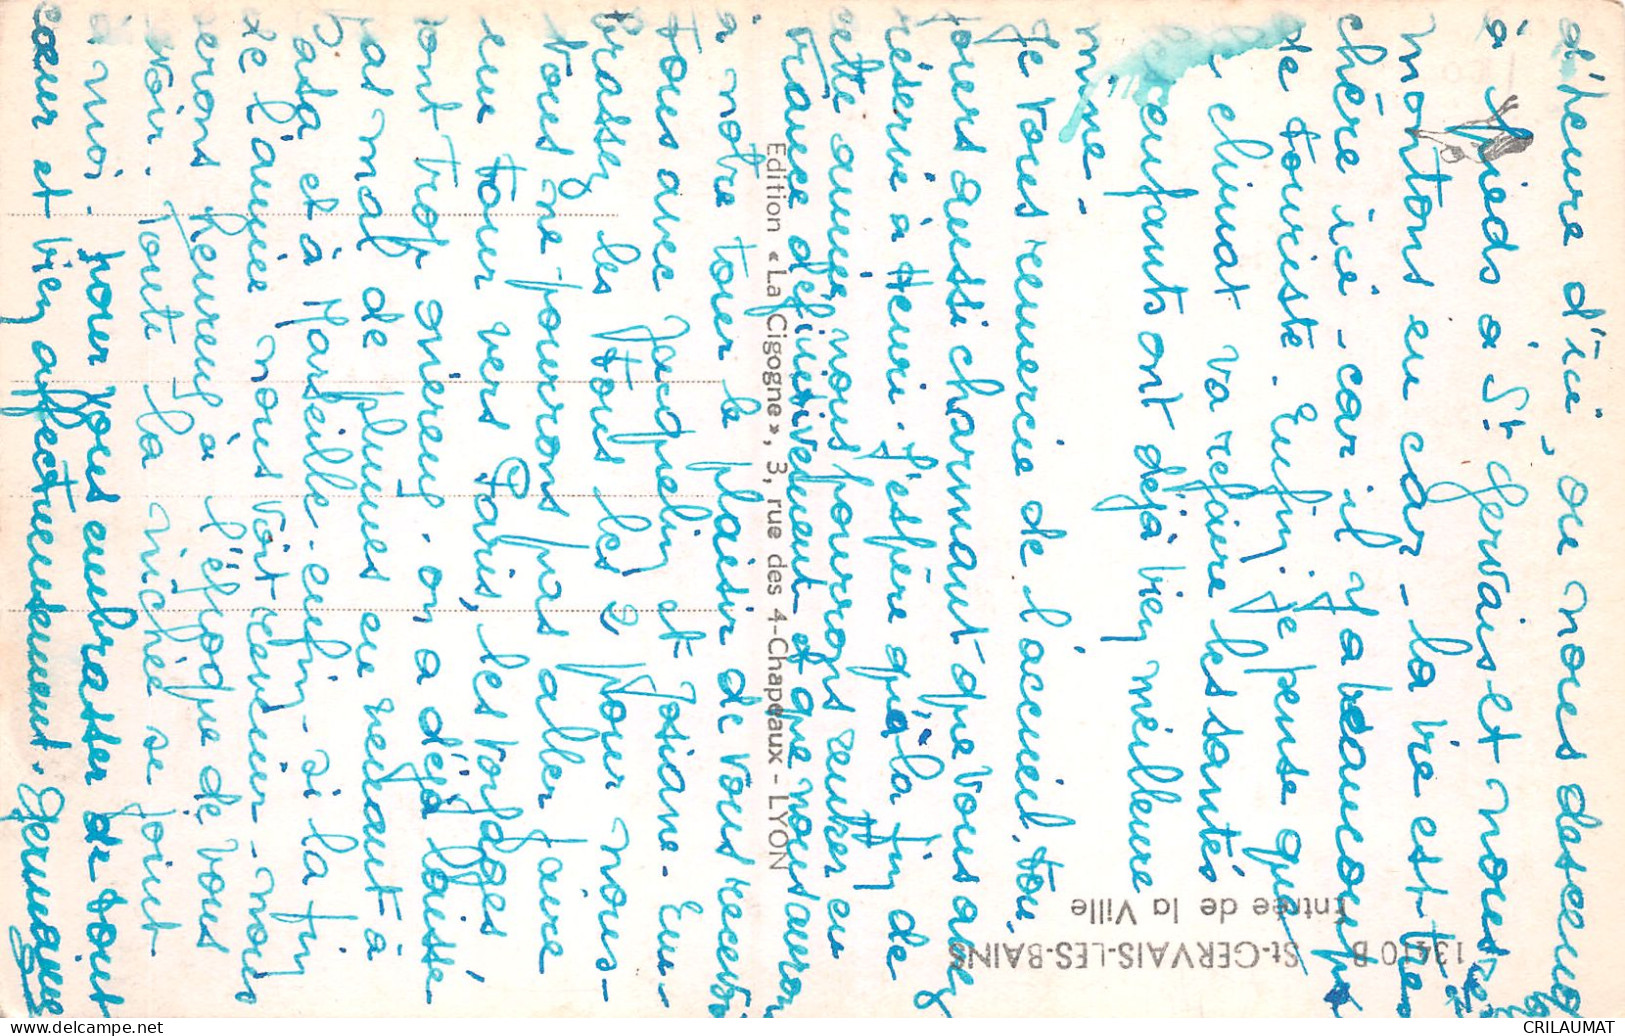 d'heure d'ici, ou nous descend
à pieds à St Gervais et nous re
montons en car - la vie est très
chère ici - car il y a beaucoup
de touriste. Enfin je pense que
le climat va refaire les santés
les enfants ont déjà bien meilleure
mine -
Je vous remercie de l'accueil tou
jours aussi charmant que vous avez
réservé à Henri. J'espère qu'à la fin de
cette année nous pourrons rentrer en
France définitivement et que nous auron
à notre tour le plaisir de vous recevoi
tous avec Jacquelin et Josiane - Em-
brassez les tous les 2 pour nous -
Nous ne pourrons pas aller faire
un tour vers Paris, les Vosges
sont trop onéreux. on a déjà laissé
pas mal de plumes en venant à
Pasa et à Marseille. enfin - si la fin
de l'année nous voit revenir - nous
serons heureux à l'époque de vous
voir. Toute la nichée se joint
à moi. pour vous embrasser de tout
cœur et bien affectueusement. Germaine
Edition «La Cigogne», 3, rue des 4-Chapeaux - LYON
13410 B St-GERVAIS-LES-BAINS
Entrée de la Ville
www.delcampe.net
CRILAUMAT